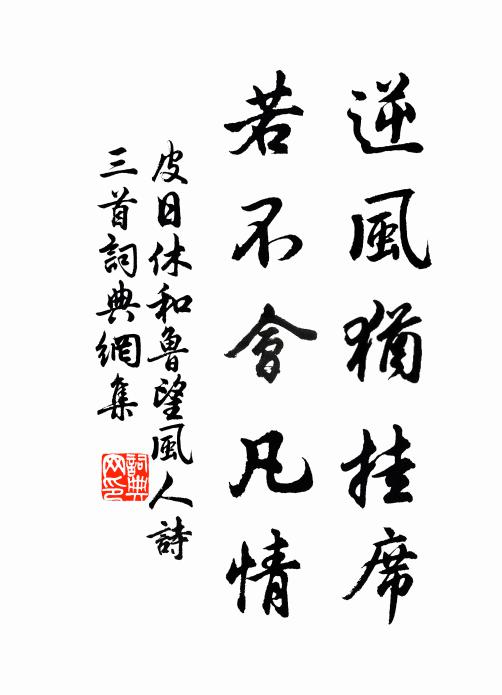 逆風猶挂席
若不會凡情
皮日休和魯望風人詩
三首詞典網集
詞典
网印